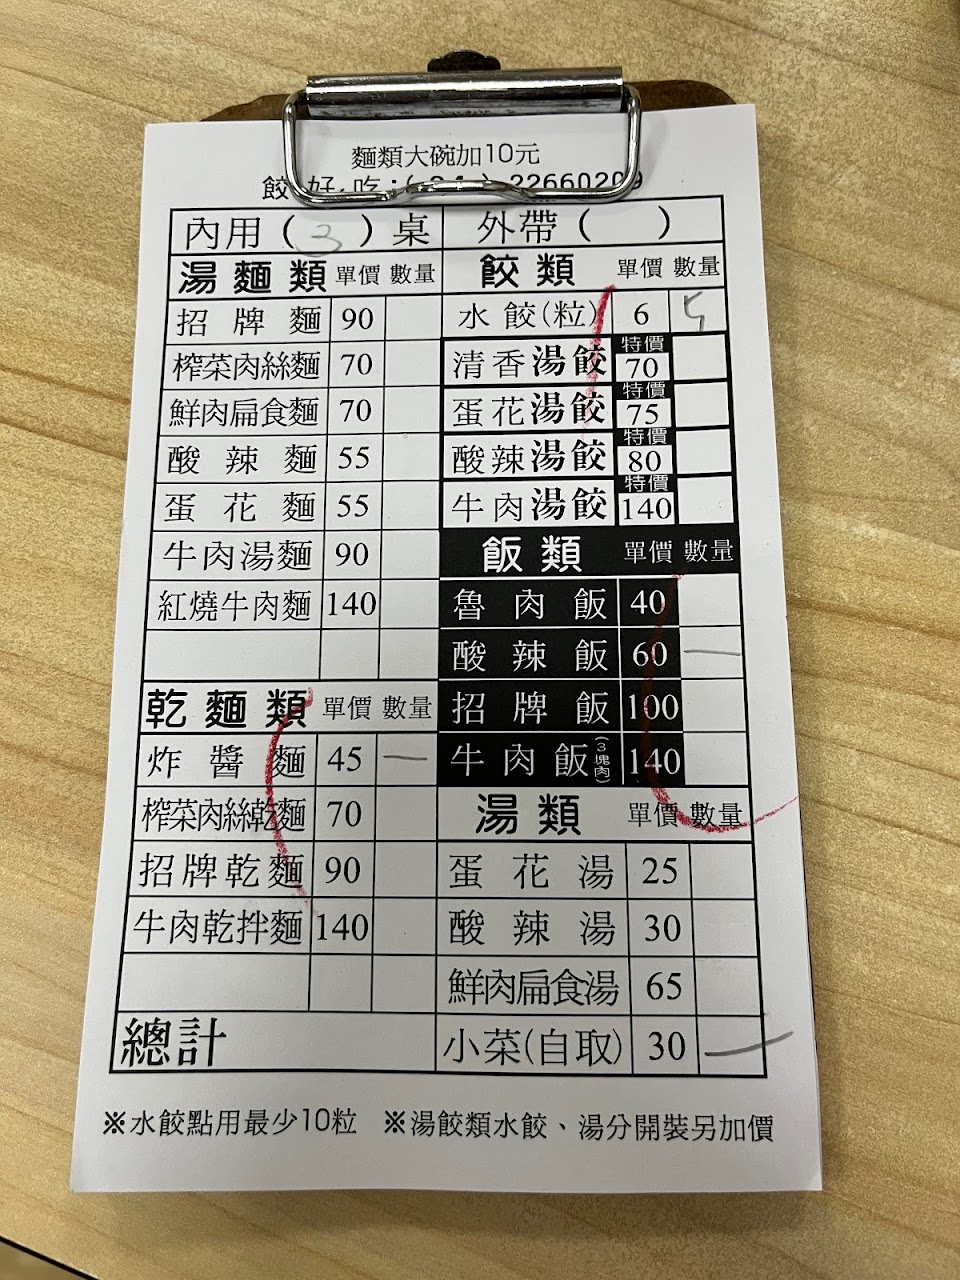 麵類大碗加10元
餃 好 吃:( 04 ) 22660209
內用( 3 )桌 外帶( )
湯麵類 單價 數量
招牌麵 90
榨菜肉絲麵 70
鮮肉扁食麵 70
酸辣麵 55
蛋花麵 55
牛肉湯麵 90
紅燒牛肉麵 140
乾麵類 單價 數量
炸醬麵 45 一
榨菜肉絲乾麵 70
招牌乾麵 90
牛肉乾拌麵 140
總計
餃類 單價 數量
水餃(粒) 6
清香湯餃 特價 70
蛋花湯餃 特價 75
酸辣湯餃 特價 80
牛肉湯餃 特價 140
飯類 單價 數量
魯肉飯 40
酸辣飯 60 一
招牌飯 100
牛肉飯(3塊肉) 140
湯類 單價 數量
蛋花湯 25
酸辣湯 30
鮮肉扁食湯 65
小菜(自取) 30 一
※水餃點用最少10粒 ※湯餃類水餃、湯分開裝另加價